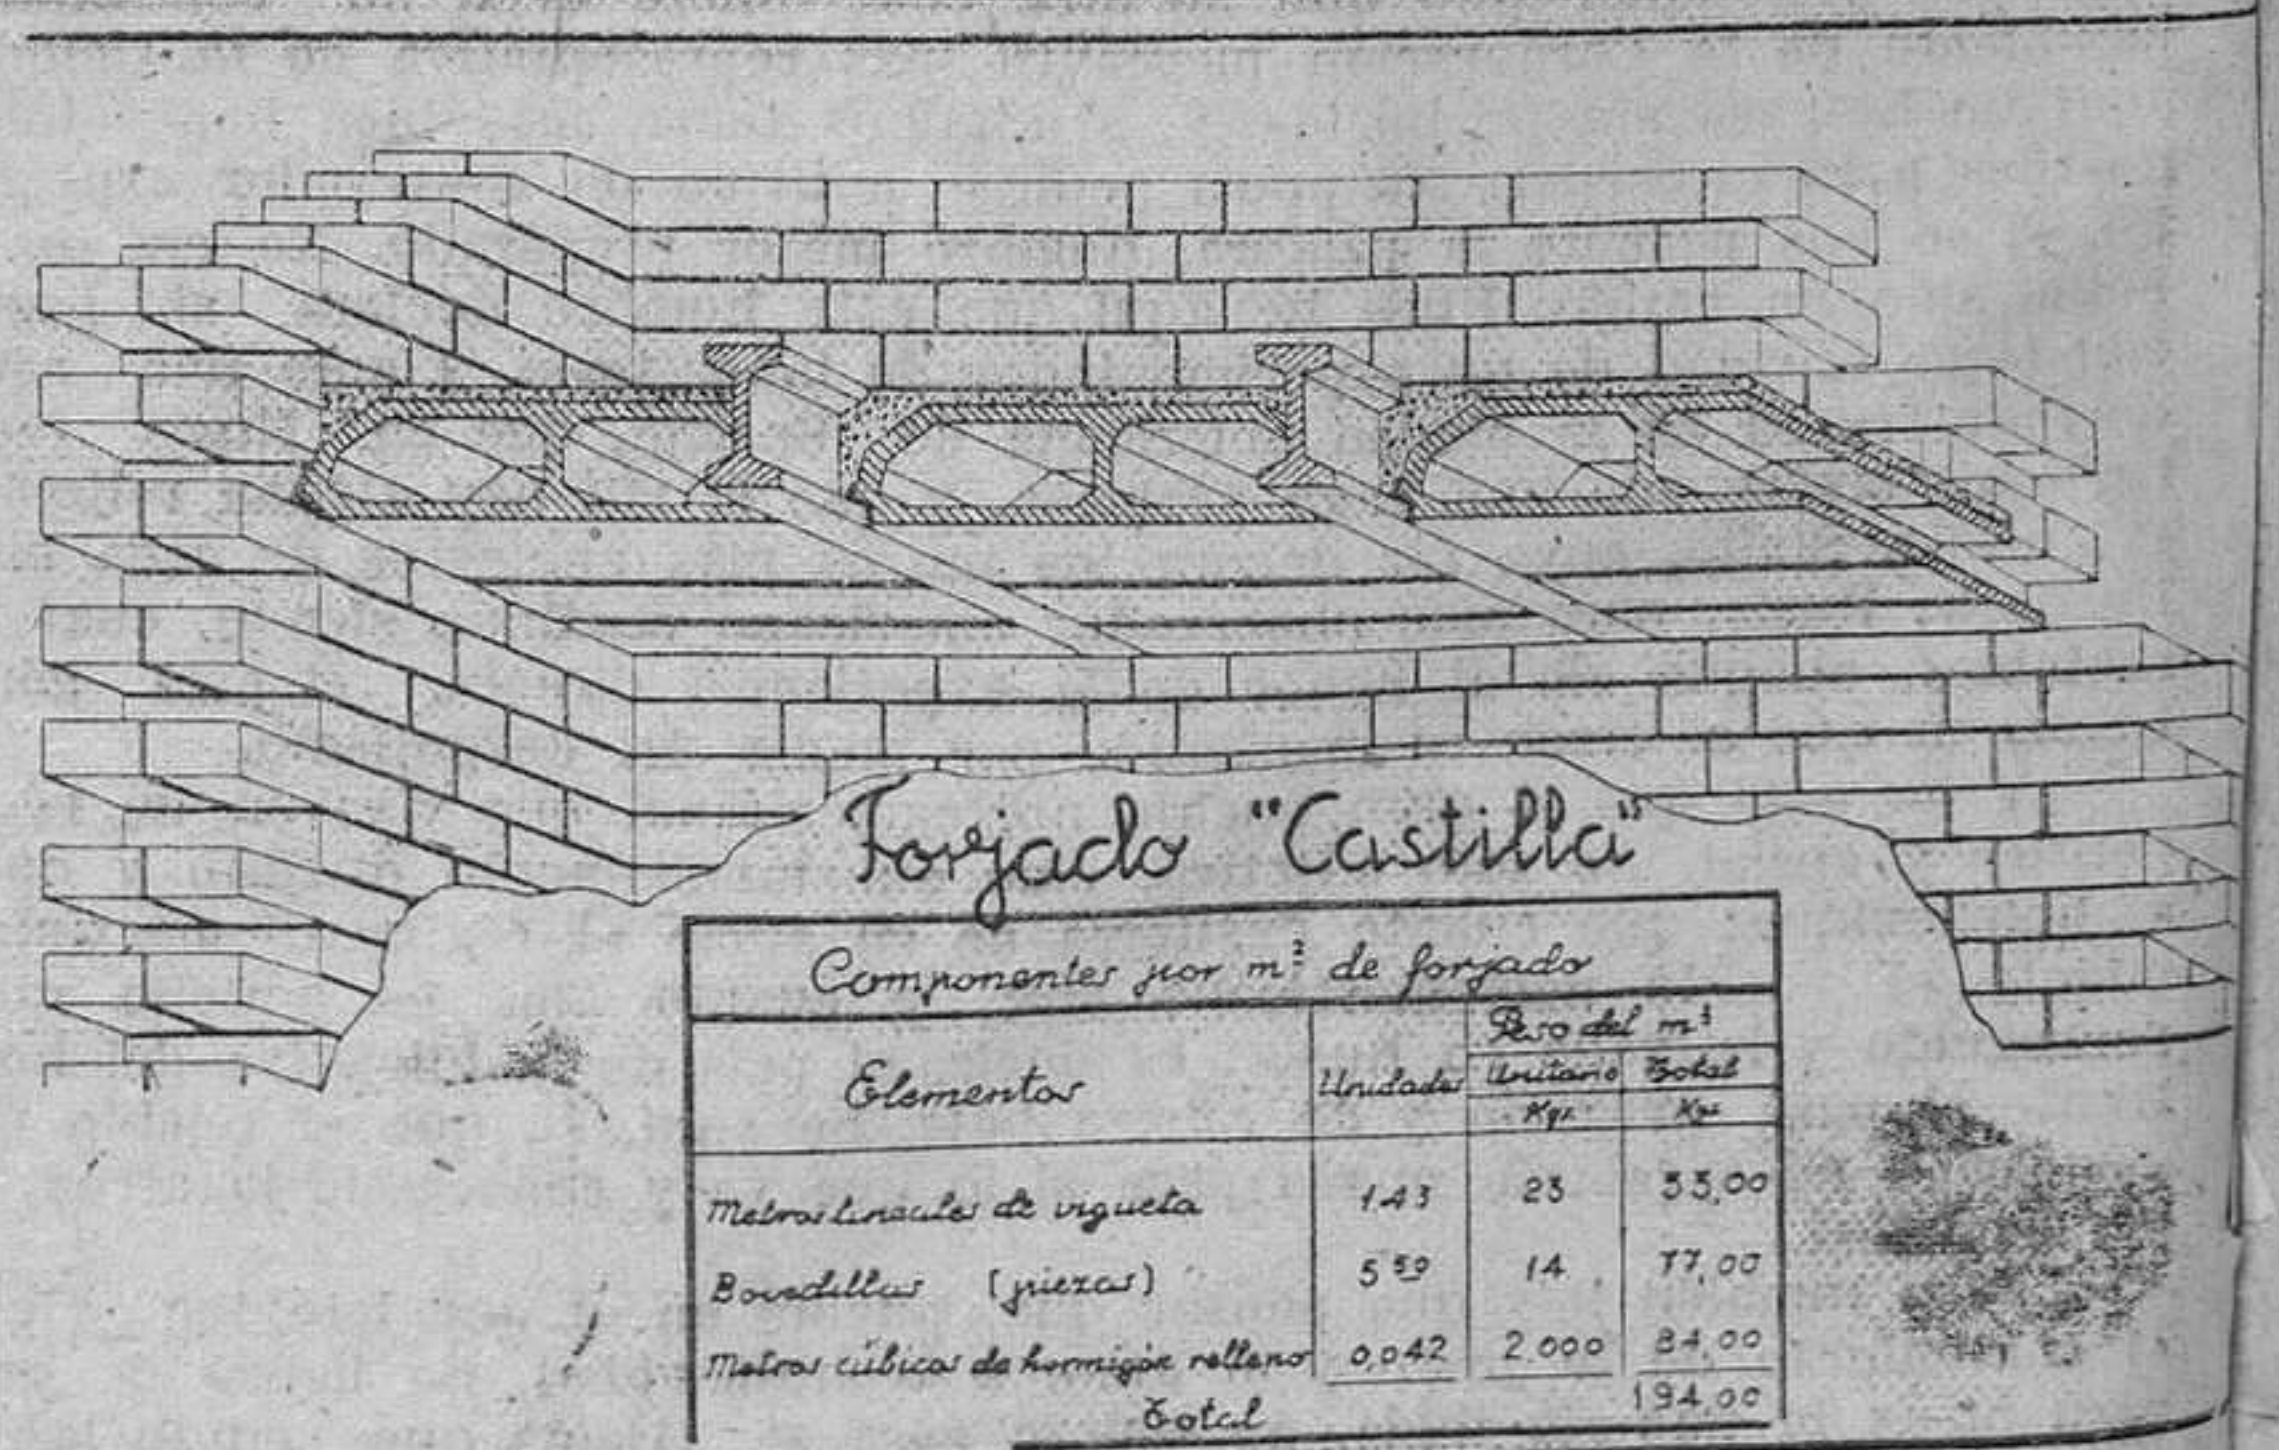 Forjado "Castilla"
Componentes por m² de forjado
Elementos Unidades Peso del m²
Unitario Total
Kgs. Kgs
Metros lineales de vigueta 1.43 23 33,00
Bovedillas (piezas) 5 50 14 77,00
Metros cúbicos de hormigón relleno 0,042 2.000 84,00
Total 194,00